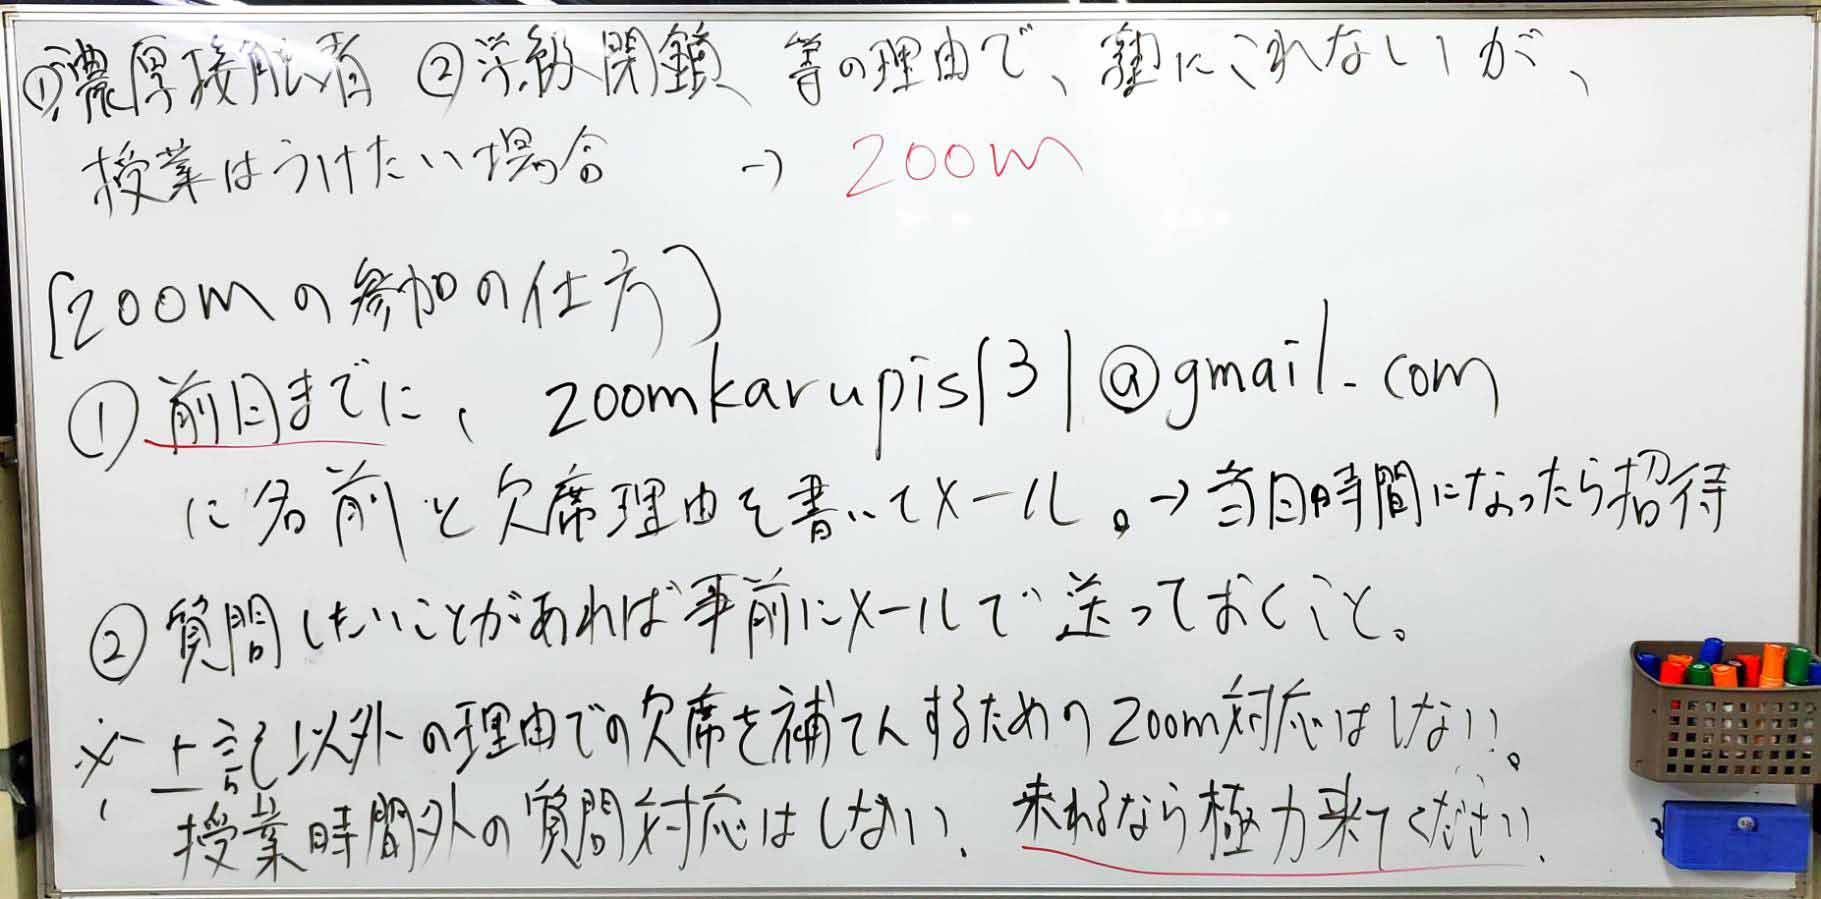 ①濃厚接触者 ②学級閉鎖 等の理由で、塾にこれないが、
授業はうけたい場合 → zoom
[zoomの参加の仕方]
①前日までに、zoomkarupis131@gmail.com
に名前と欠席理由を書いてメール。→当日時間になったら招待
②質問したいことがあれば事前にメールで送っておくこと。
※上記以外の理由での欠席を補てんするためのzoom対応はしない。
授業時間外の質問対応はしない。来れるなら極力来てください。